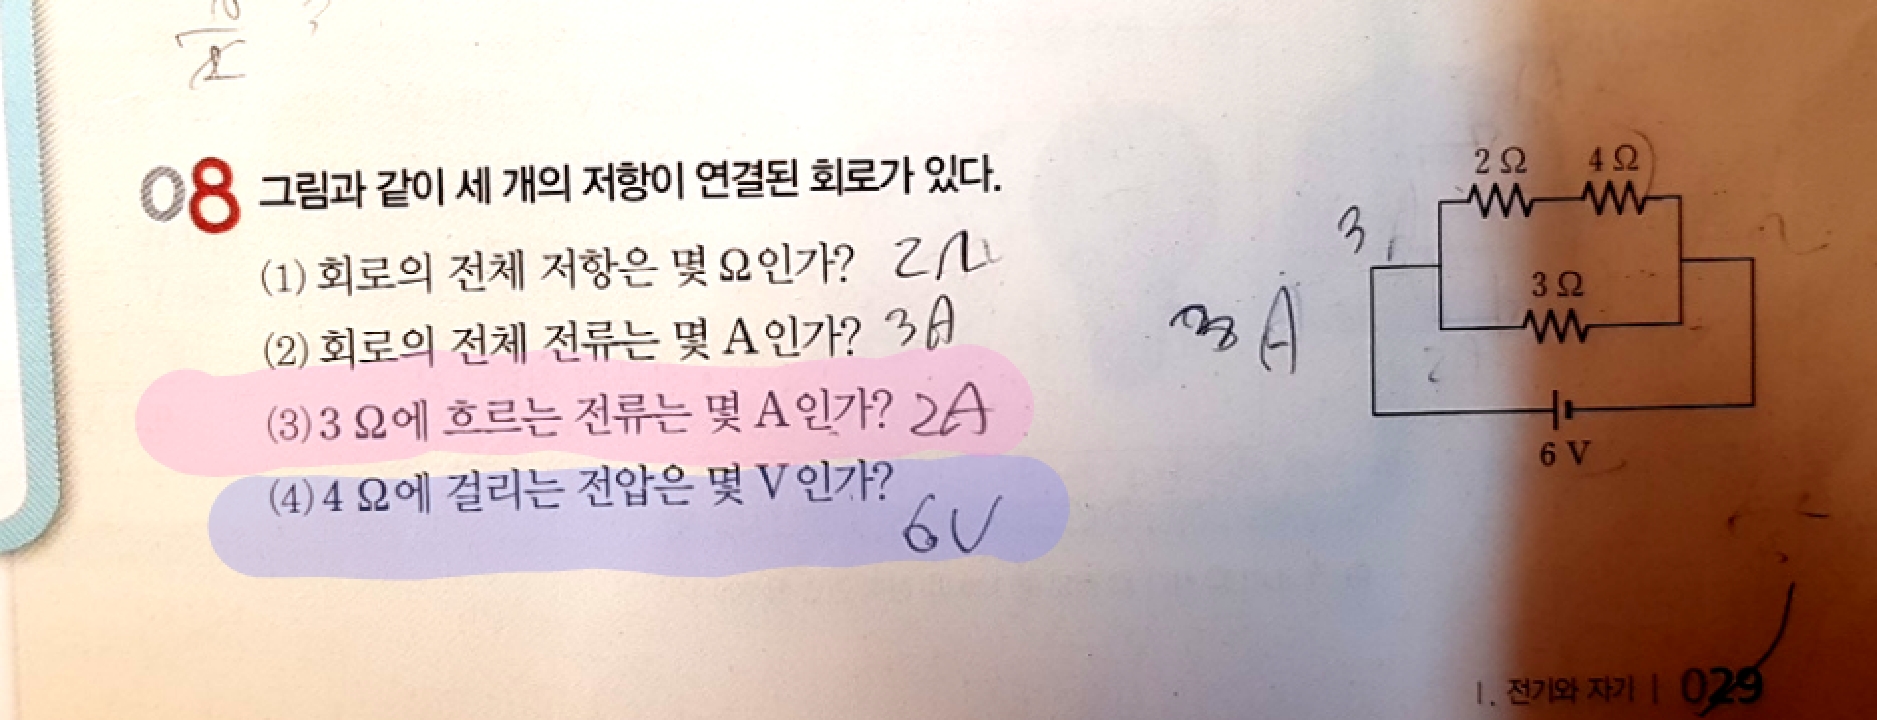 08 그림과 같이 세 개의 저항이 연결된 회로가 있다.
(1) 회로의 전체 저항은 몇 Ω인가? 2Ω
(2) 회로의 전체 전류는 몇 A인가? 3A
(3) 3 Ω에 흐르는 전류는 몇 A인가? 2A
(4) 4 Ω에 걸리는 전압은 몇 V인가?
6V
2 Ω 4 Ω
3
3 Ω
A
6 V
Ⅰ. 전기와 자기 | 029